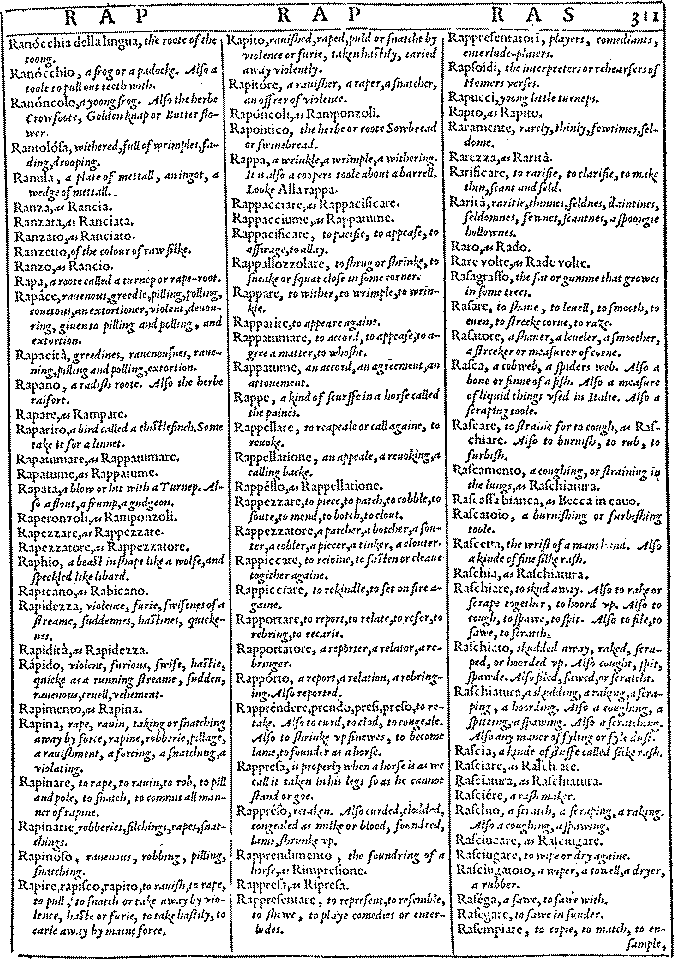 RAP RAP RAS 311
Ranócchia della lingua, the roote of the
toong.
Ranócchio, a frog or a padocke. Also a
toole to pull out teeth with.
Ranóncolo, a yoong frog. Also the herbe
Crowfoote, Goldenknap or Butter flo-
wer.
Rantolósa, withered, full of wrimples, fa-
ding, drooping.
Ranula, a plate of mettall, an ingot, a
wedge of mettall.
Ranza, as Rancia.
Ranzata, as Ranciata.
Ranzato, as Ranciato.
Ranzetto, of the colour of raw silke.
Ranzo, as Rancio.
Rapa, a roote called a turnep or rape-root.
Rapáce, rauenous, greedie, pilling, polling,
couetous, an extortioner, violent, deuou-
ring, giuen to pilling and polling, and
extortion.
Rapacità, greedines, rauenousnes, raue-
ning, pilling and polling, extortion.
Rapano, a radish roote. Also the herbe
raifort.
Rapare, as Rampare.
Raparino, a bird called a thistlefinch. Some
take it for a linnet.
Rapattumare, as Rappattumare.
Rapatume, as Rappatume.
Rapata, a blow or hit with a Turnep. Al-
so a flout, a frump, a gudgeon.
Raperonzoli, as Ramponzoli.
Rapezzare, as Rappezzare.
Rapezzatore, as Rappezzatore.
Raphio, a beast in shape like a wolfe, and
speckled like libard.
Rapicano, as Rabicano.
Rapidezza, violence, furie, swiftnes of a
streame, suddennes, hastines, quicke-
nes.
Rapidità, as Rapidezza.
Rápido, violent, furious, swift, hastie,
quicke as a running streame, sudden,
rauenous, cruell, vehement.
Rapimento, as Rapina.
Rapina, rape, rauin, taking or snatching
away by force, rapine, robberie, pillage,
a rauishment, a forcing, a snatching, a
violating.
Rapinare, to rape, to rauin, to rob, to pill
and pole, to snatch, to commit all man-
ner of rapine.
Rapinarie, robberies, filchings, rapes, snat-
chings.
Rapinóso, rauenous, robbing, pilling,
snatching.
Rapire, rapisco, rapito, to rauish, to rape,
to pull, to snatch or take away by vio-
lence, haste or furie, to take hastily, to
carie away by maine force.
Rapito, rauished, raped, puld or snatcht by
violence or furie, taken hastily, caried
away violently.
Rapitóre, a rauisher, a raper, a snatcher,
an offrer of violence.
Rapónzoli, as Ramponzoli.
Rapontico, the herbe or roote Sowbread
or swinebread.
Rappa, a wrinkle, a wrimple, a withering.
It is also a coopers toole about a barrell.
Looke Alla rappa.
Rappacciare, as Rappacificare.
Rappacciume, as Rappatume.
Rappacificare, to pacifie, to appease, to
asswage, to allay.
Rappallozzolare, to shrug or shrinke, to
sneake or squat close in some corner.
Rappare, to wither, to wrimple, to wrin-
kle.
Rapparire, to appeare againe.
Rappattumare, to accord, to appease, to a-
gree a matter, to whosht.
Rappatume, an accord, an agreement, an
attonement.
Rappe, a kind of scurffe in a horse called
the paines.
Rappellare, to reapeale or call againe, to
reuoke.
Rappellatione, an appeale, a reuoking, a
calling backe.
Rappéllo, as Rappellatione.
Rappezzare, to piece, to patch, to cobble, to
soute, to mend, to botch, to clout.
Rappezzatore, a patcher, a botcher, a sou-
ter, a cobler, a piecer, a tinker, a clouter.
Rappiccare, to reioine, to fasten or cleaue
togither againe.
Rappicciare, to rekindle, to set on fire a-
gaine.
Rapportare, to report, to relate, to refer, to
rebring, to recarie.
Rapportatore, a reporter, a relator, a re-
bringer.
Rappórto, a report, a relation, a rebring-
ing. Also reported.
Rapprendere, prendo, presi, preso, to re-
take. Also to curd, to clod, to congeale.
Also to shrinke vp sinewes, to become
lame, to founder as a horse.
Rappresa, is properly when a horse is as we
call it taken in his legs so as he cannot
stand or goe.
Rappréso, retaken. Also curded, clodded,
congealed as milke or blood, foundred,
lame, shrunke vp.
Rapprendimento, the foundring of a
horse, as Rimpresione.
Rappresa, as Ripresa.
Rappresentare, to represent, to resemble,
to shewe, to playe comedies or enter-
ludes.
Rappresentatori, players, comediants,
enterlude-plaiers.
Rapsoidi, the interpreters or rehearsers of
Homers verses.
Rapucci, yoong little turneps.
Rapto, as Rapito.
Raramente, rarely, thinly, fewtimes, sel-
dome.
Rarezza, as Rarità.
Rarificare, to rarifie, to clarifie, to make
thin, scant and seld.
Rarità, raritie, thinnes, seldnes, daintines,
seldomnes, fewnes, scantnes, a spoongie
hollownes.
Raro, as Rado.
Rare volte, as Rade volte.
Rasagrasso, the fat or gumme that growes
in some trees.
Rasare, to shaue, to leuell, to smooth, to
euen, to streeke corne, to raze.
Rasatore, a shauer, a leueler, a smoother,
a streeker or measurer of corne.
Rasca, a cobweb, a spiders web. Also a
bone or finne of a fish. Also a measure
of liquid things vsed in Italie. Also a
scraping toole.
Rascare, to straine for to cough, as Ras-
chiare. Also to burnish, to rub, to
furbish.
Rascamento, a coughing, or straining in
the lungs, as Raschiatura.
Rascassa bianca, as Becca in cauo.
Rascatoio, a burnishing or furbishing
toole.
Rascetta, the wrist of a mans hand. Also
a kinde of fine silke rash.
Raschia, as Raschiatura.
Raschiare, to skud away. Also to rake or
scrape together, to hoord vp. Also to
cough, to spawe, to spit. Also to file, to
sawe, to scratch.
Raschiato, skudded away, raked, scra-
ped, or hoorded vp. Also cought, spit,
spawde. Also filed, sawed, or scratcht.
Raschiatura, a skudding, a raking, a scra-
ping, a hoording. Also a coughing, a
spitting, a spawing. Also a scratching.
Also any maner of fyling or fyle dust.
Rascia, a kinde of stuffe called silke rash.
Rasciare, as Raschiare.
Rasciatura, as Raschiatura.
Rasciére, a rash maker.
Raschio, a scratch, a scraping, a raking.
Also a coughing, a spawing.
Rasciucare, as Rasciugare.
Rasciugare, to wipe or dry againe.
Rasciugatoio, a wiper, a towell, a dryer,
a rubber.
Raséga, a sawe, to saw with.
Rasegare, to sawe in sunder.
Rasempiare, to copie, to match, to en-
sample,